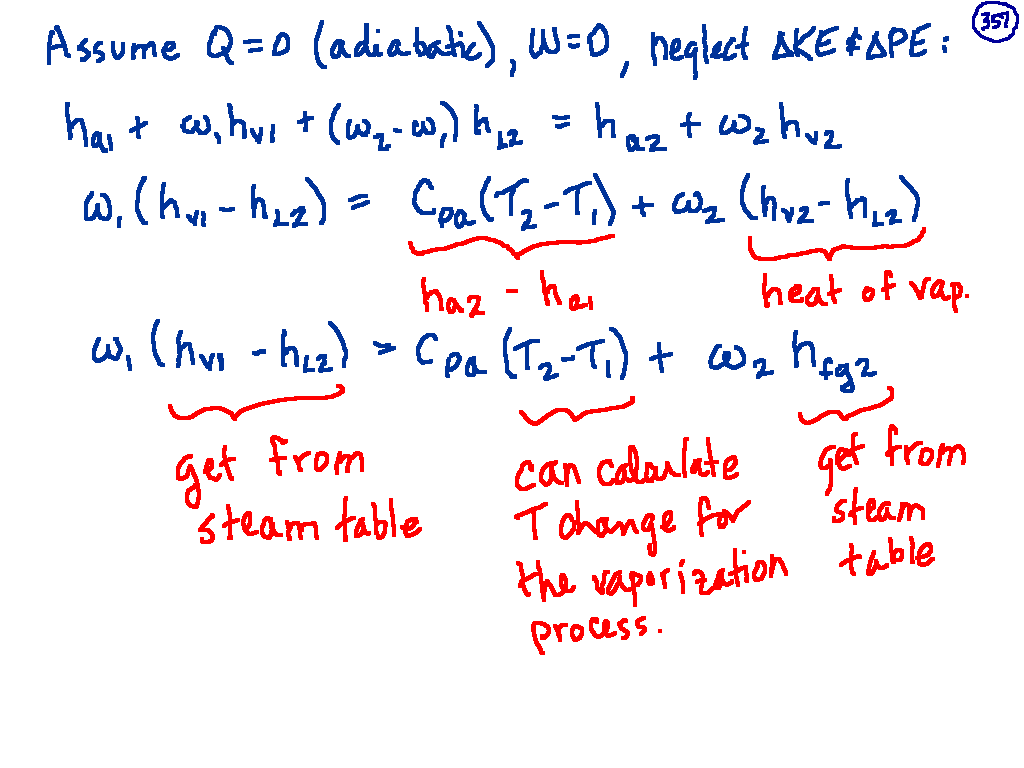 357
Assume Q=0 (adiabatic), W=0, neglect ΔKE & ΔPE:
h_a1 + ω_1 h_v1 + (ω_2 - ω_1) h_L2 = h_a2 + ω_2 h_v2
ω_1 (h_v1 - h_L2) = C_pa (T_2 - T_1) + ω_2 (h_v2 - h_L2)
h_a2 - h_a1 heat of vap.
ω_1 (h_v1 - h_L2) = C_pa (T_2 - T_1) + ω_2 h_fg2
get from
steam table
can calculate
T change for
the vaporization
process.
get from
steam
table